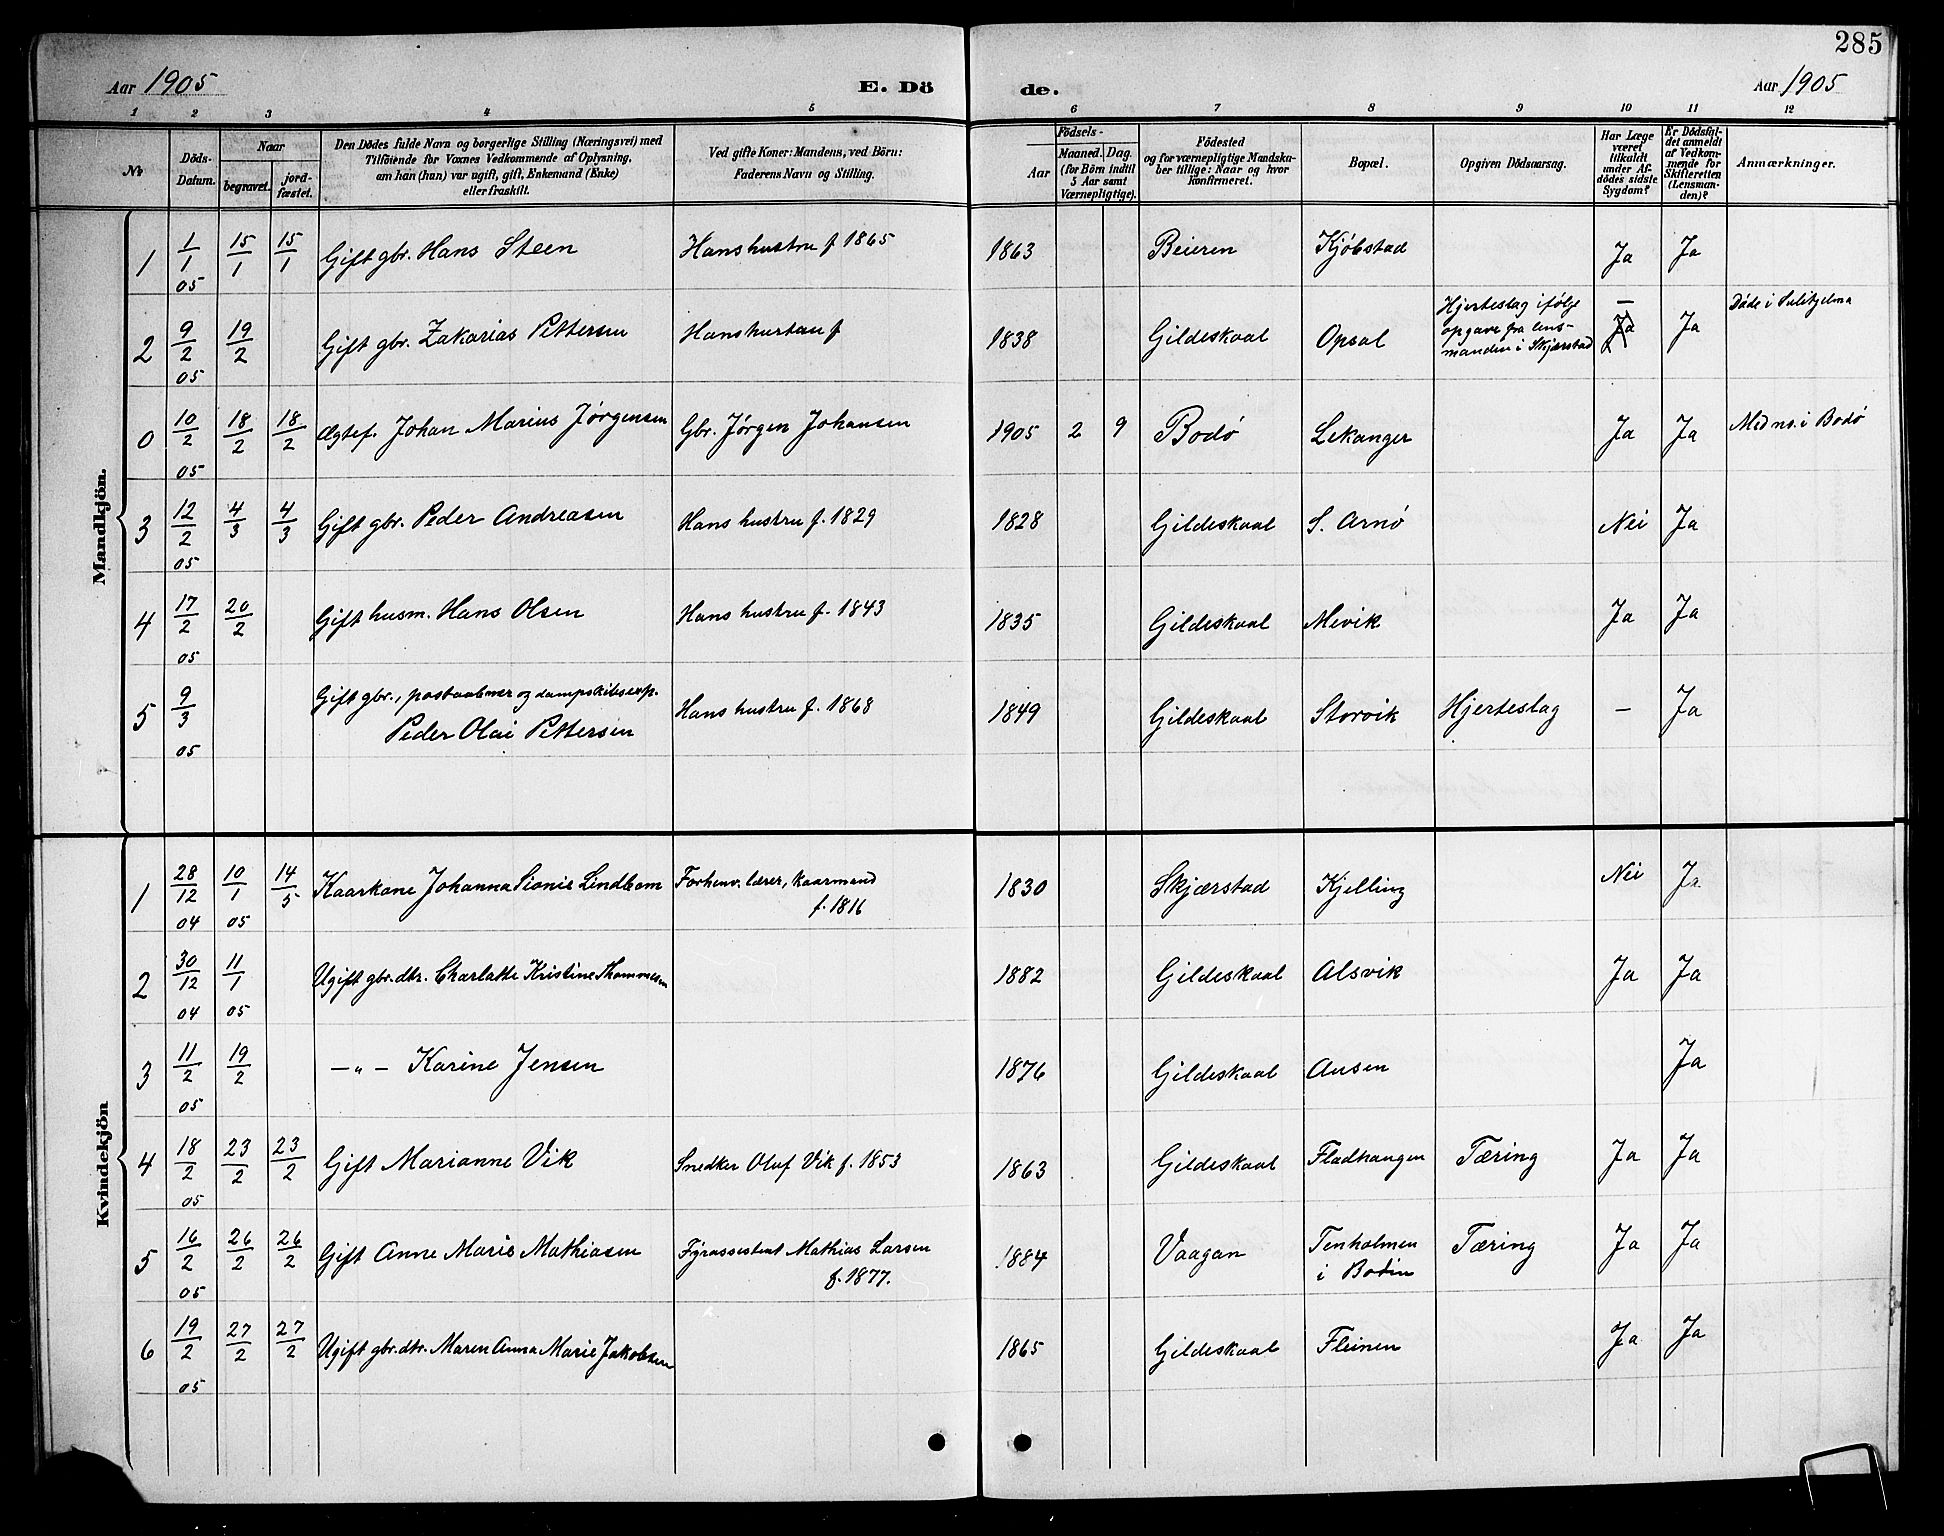 285
Aar 1905 E. Dö de. Aar 1905
1 2 3 4 5 6 7 8 9 10 11 12
№
Döds-Datum.
Naar
begravet.
jordfæstet.
Den Dödes fulde Navn og borgerlige Stilling (Næringsvei) med
Tilföiende for Voxnes Vedkommende af Oplysning,
om han (hun) var ugift, gift, Enkemand (Enke)
eller fraskilt.
Ved gifte Koner: Mandens, ved Börn:
Faderens Navn og Stilling.
Födsels-
Aar
Maaned. Dag.
(for Börn indtil
5 Aar samt
Værnepligtige).
Födested
og for værnepligtige Mandska-
ber tillige: Naar og hvor
konfirmeret.
Bopæl.
Opgiven Dödsaarsag.
Har Læge
været
tilkaldt
under Af-
dödes sidste
Sygdom?
Er Dödsfal-
det anmeldt
af Vedkom-
mende for
Skifteretten
(Lensman-
den)?
Anmærkninger.
Mandkjön.
1 1/1 05 15/1 15/1 Gift gbr. Hans Steen Hans hustru f 1865 1863 Beieren Kjöbstad Ja Ja
2 9/2 05 19/2 Gift gbr. Zakarias Pettersen Hans hustru f 1838 Gildeskaal Opsal Hjerteslag ifølge
opgave fra lens-
manden i Skjærstad — Ja Ja Døde i Sulitjelma
0 10/2 05 18/2 18/2 Ægtef. Johan Marius Jörgensen Gbr. Jörgen Johansen 1905 2 9 Bodö Lekanger Ja Ja Med no. i Bodö
3 12/2 05 4/3 4/3 Gift gbr. Peder Andreasen Hans hustru f. 1829 1828 Gildeskaal S. Arnö Nei Ja
4 17/2 05 20/2 Gift husm. Hans Olsen Hans hustru f. 1843 1835 Gildeskaal Mevik Ja Ja
5 9/3 05 Gift gbr., postaabner og dampskibsexp.
Peder Olai Pettersen Hans hustru f. 1868 1849 Gildeskaal Storvik Hjerteslag — Ja
Kvindekjön
1 28/12 04 10/1 05 14/5 Kaarkone Johanna Sionie Lindbom Forhenv. lærer, kaarmand
f. 1816 1830 Skjærstad Kjelling Nei Ja
2 30/12 04 11/1 05 Ugift gbr. dtr. Charlotte Kristine Thommesen 1882 Gildeskaal Alsvik Ja Ja
3 11/2 05 19/2 — „ — Karine Jensen 1876 Gildeskaal Ausen Ja
4 18/2 05 23/2 23/2 Gift Marianne Vik Snedker Oluf Vik f. 1853 1863 Gildeskaal Fladhaugen Tæring Ja Ja
5 16/2 05 26/2 26/2 Gift Anne Marie Mathiasen Fyrassistent Mathias Larsen
f. 1877. 1884 Vaagan Tenholmen
i Bodin Tæring Ja Ja
6 19/2 05 27/2 27/2 Ugift gbr. dtr. Maren Anna Marie Jakobsen 1865 Gildeskaal Fleinen Ja Ja